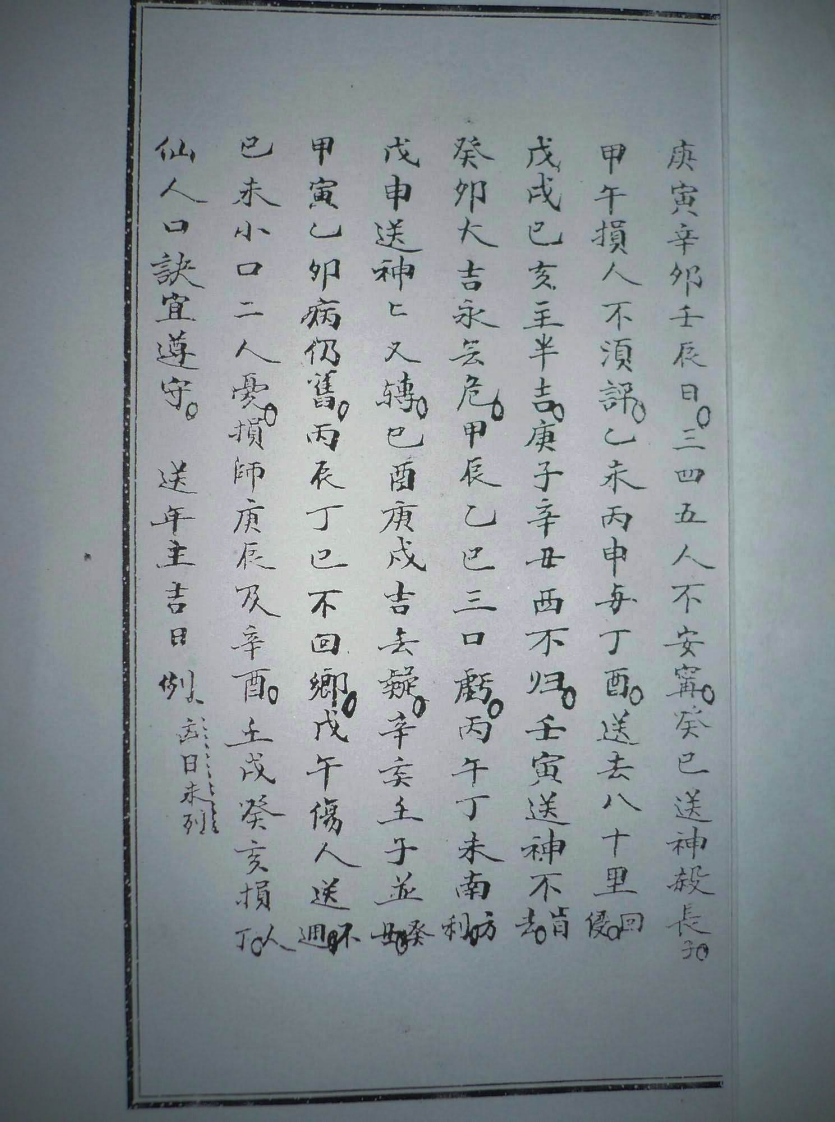 庚寅辛卯壬辰日。三四五人不安寗。癸巳送神殺長子。
甲午損人不須評。乙未丙申与丁酉。送去八十里回侵。
戊戌己亥主半吉。庚子辛丑西不归。壬寅送神不肯去。
癸卯大吉永无危。甲辰乙巳三口虧。丙午丁未南方利。
戊申送神匕又轉。己酉庚戌吉去疑。辛亥壬子並癸丑。
甲寅乙卯病仍舊。丙辰丁巳不回鄉。戊午傷人送不週。
己未小口二人憂。損師庚辰及辛酉。壬戌癸亥損人丁。
仙人口訣宜遵守。 送年主吉日例
日未列